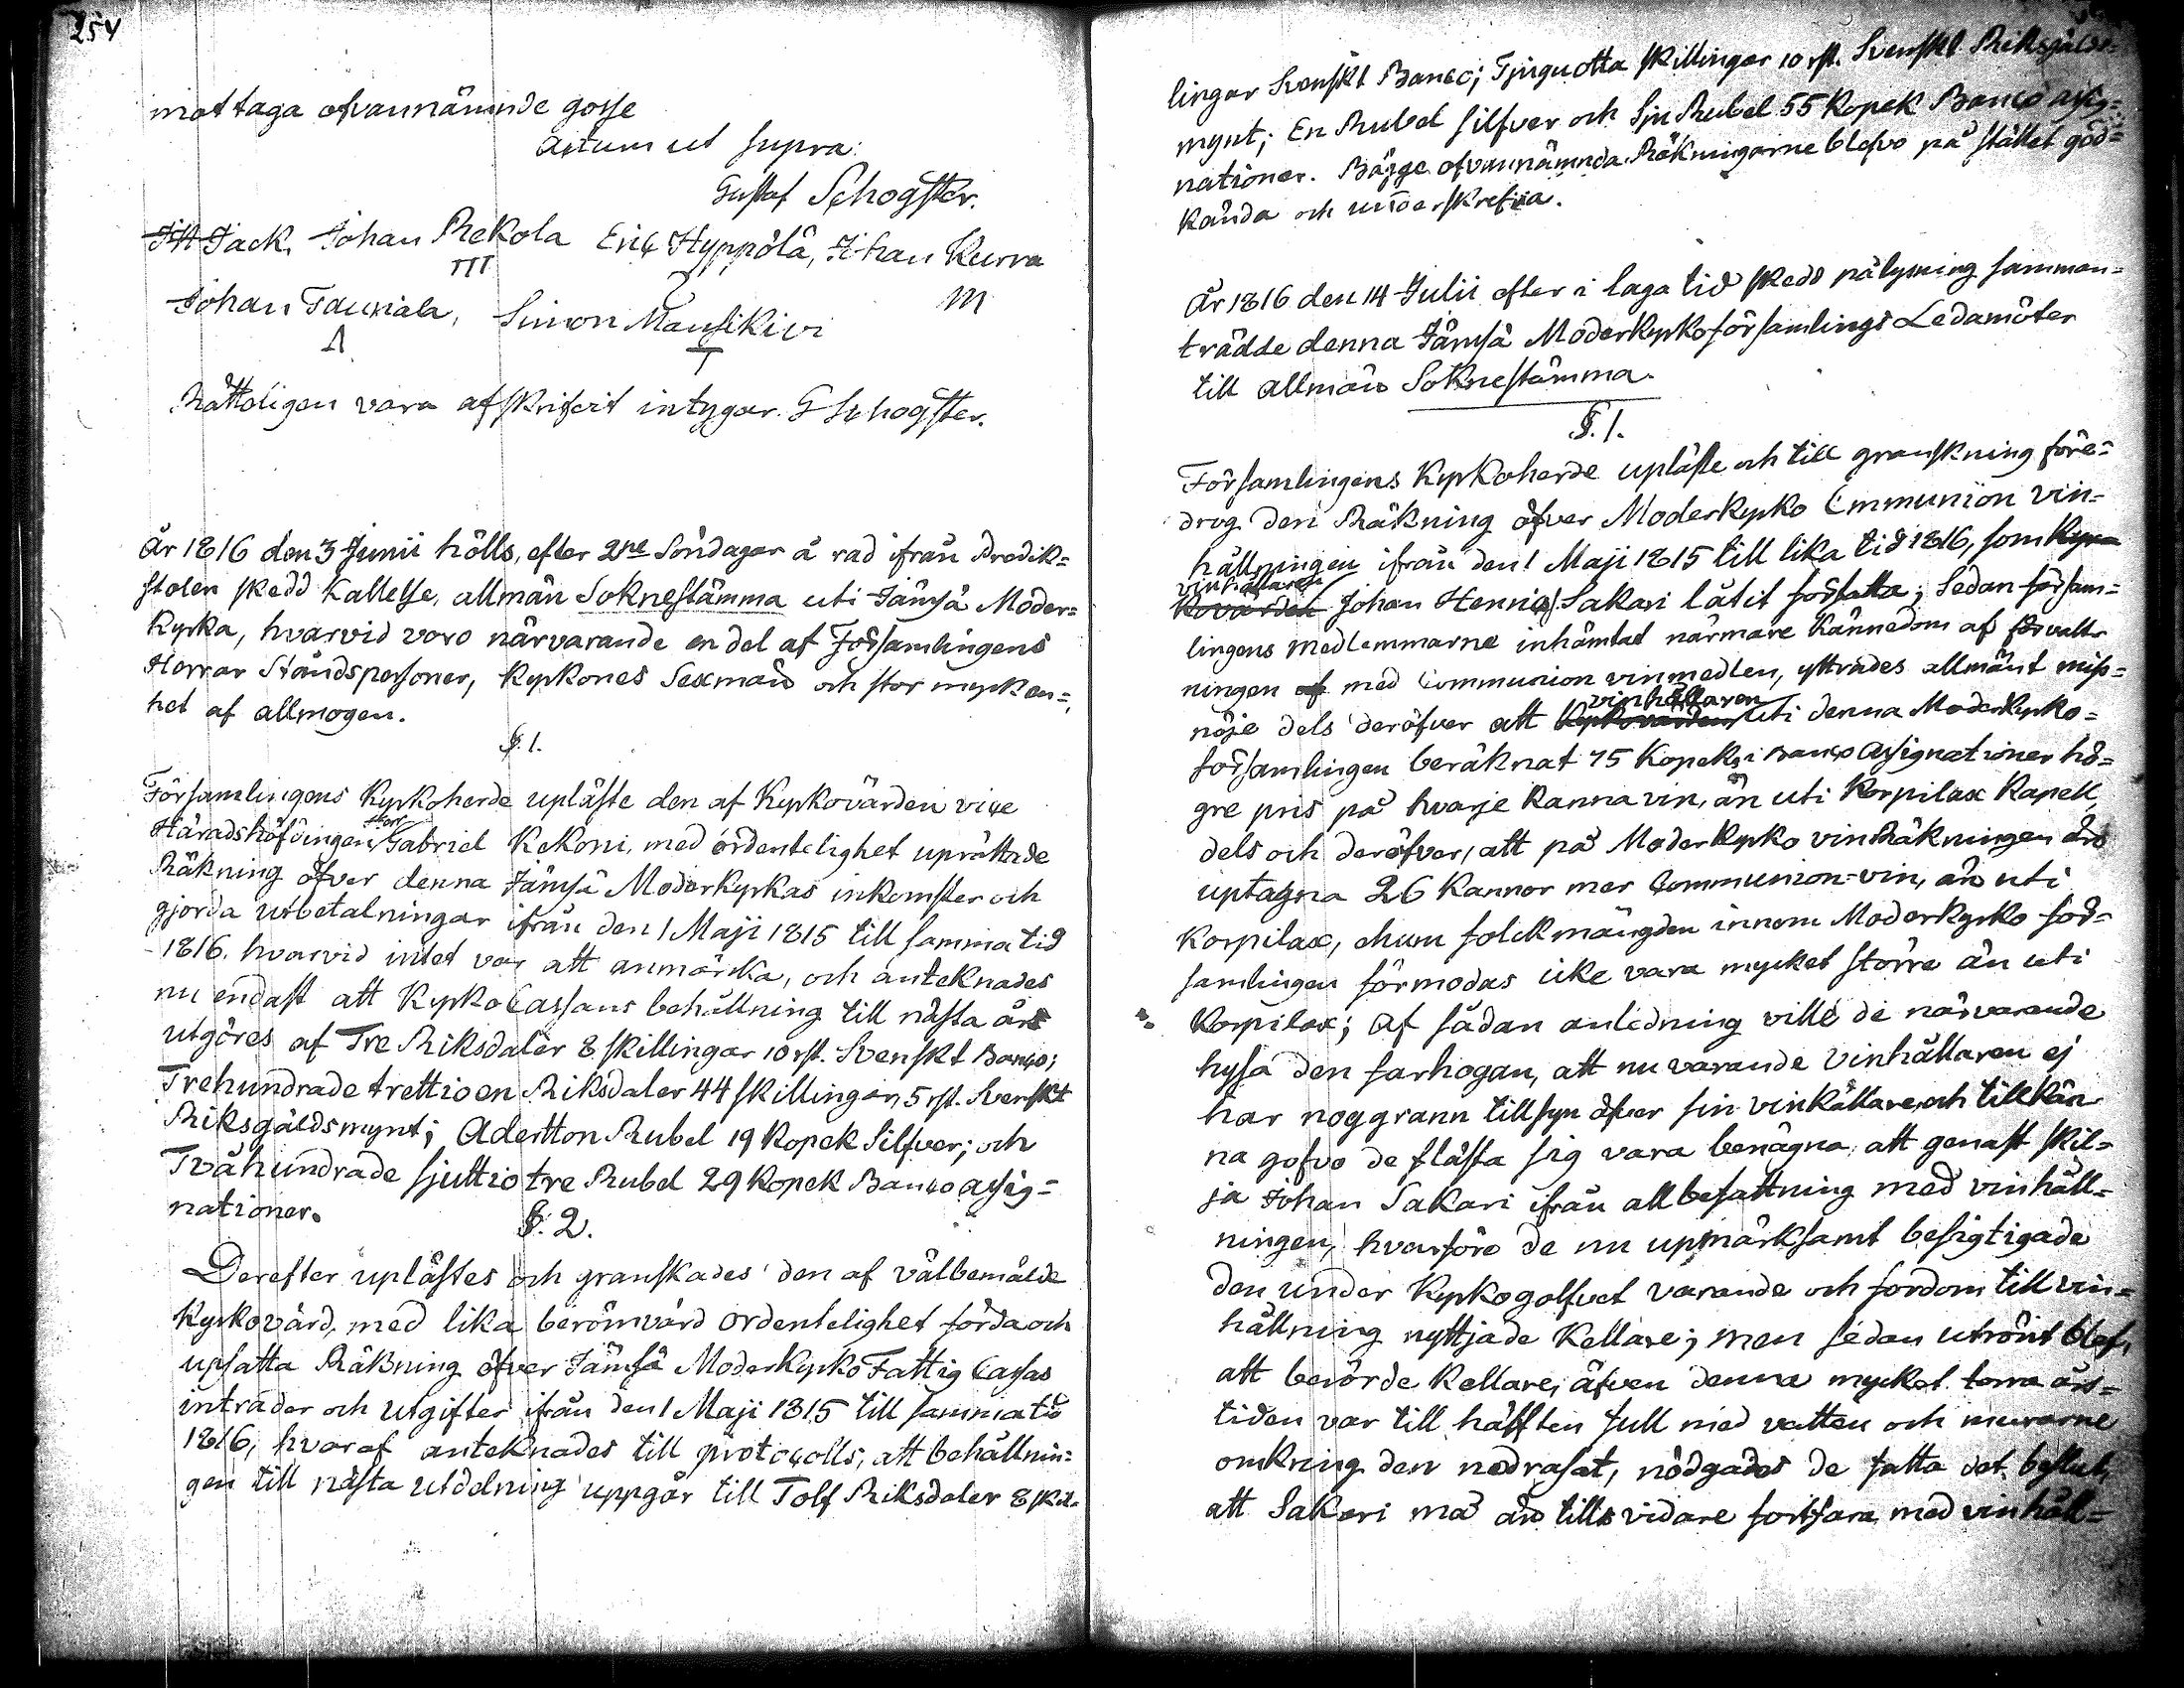 254
mottaga ofvannämnde gosse
Actum ut supra:
Gustaf Schogster.
Jack, Johan Rekola Eric Hyppölä, Johan Kurra
Johan Tauriala, Simon Mansikivi
m
Rätteligen vara afskrifvit intygar. G Schogster.
År 1816 den 3 Junii hölls, efter 2ne Söndagar å rad ifrån Predik=
stolen skedd Kallelse, allmän Soknestämma uti Jämsä Moder=
Kyrka, hvarvid voro närvarande en del af Församlingens
Herrar Ståndspersoner, Kyrkones Sexmän och stor mycken=
het af allmogen.
§. 1.
Församlingens Kyrkoherde upläste den af Kyrkovärden vice
Häradshöfdingen Herr Gabriel Kekoni, med ordentelighet uprättade
Räkning öfver denna Jämsä Moderkyrkas inkomster och
gjorda utbetalningar ifrån den 1 Maji 1815 till samma tid
1816, hvarvid intet var att anmärka, och anteknades
nu endast att KyrkoCassans behållning till nästa år
utgöres af Tre Riksdaler 8 skillingar 10 rst. Svenskt Banco;
Trehundrade trettioen Riksdaler 44 skillingar 5 rst. Svenskt
Riksgäldsmynt; Adertton Rubel 19 Kopek Silfver; och
Tvåhundrade sjuttiotre Rubel 29 Kopek Banco assig=
nationer.
§. 2.
Derefter uplästes och granskades den af välbemälde
Kyrkovärd, med lika berömvärd ordentelighet förda och
upsatta Räkning öfver Jämsä ModerKyrko Fattig Cassas
inträder och utgifter ifrån den 1 Maji 1815 till samma tid
1816, hvaraf anteknades till protocolls, att behållnin=
gen till nästa utdelning uppgår till Tolf Riksdaler 8 skil=
lingar Svenskt Banco; Tjuguotta skillingar 10 rst. Svenskt Riksgälds=
mynt; En Rubel silfver och Sju Rubel 55 Kopek Banco assig=
nationer. Bägge ofvannämnda Räkningarne blefvo på stället god=
kända och underskrefna.
År 1816 den 14 Julii efter i laga tid skedd pålysning samman=
trädde denna Jämsä Moderkyrkoförsamlings Ledamöter
till allmän Soknestämma.
§. 1.
Församlingens Kyrkoherde upläste och till granskning före=
drog den Räkning öfver Moderkyrko Communion vin=
hållningen ifrån den 1 Maji 1815 till lika tid 1816, som Kyr
vinhållaren
kovärden Johan Henric Sakari låtit författa; Sedan försam=
lingens medlemmarne inhämtat närmare Kännedom af förvalt
ningen af med Communion vinmedlen, yttrades allmänt miss=
vinhållaren
nöje dels deröfver att Kyrkovärden uti denna Moderkyrko=
församlingen beräknat 75 Kopek i Banco Assignationer hö=
gre pris på hvarje Kanna vin, än uti Korpilax Kapell,
dels och deröfver, att på Moderkyrko vinRäkningen äro
uptagna 26 Kannor mer Communion-vin, än uti
Korpilax, ehuru folckmängden innom Moderkyrko för=
samlingen förmodas icke vara mycket större än uti
Korpilax; af sådan anledning ville de närvarande
hysa den farhogan, att nuvarande Vinhållaren ej
har noggrann tillsyn öfver sin vinkällare, och tillkän
na gofvo de flästa sig vara benägna att genast skil=
ja Johan Sakari ifrån all befattning med vinhåll=
ningen, hvarföre de nu upmärksamt besigtigade
den under Kyrkogolfvet varande och fordom till vin=
hållning nyttjade Kellare; men sedan utrönt blef,
att berörde Kellare, äfven denna mycket torra års=
tiden var till hälften full med vatten och murarne
omkring den nedrasat, nödgades de fatta det beslut,
att Sakari må än tills vidare fortfara med vinhåll=